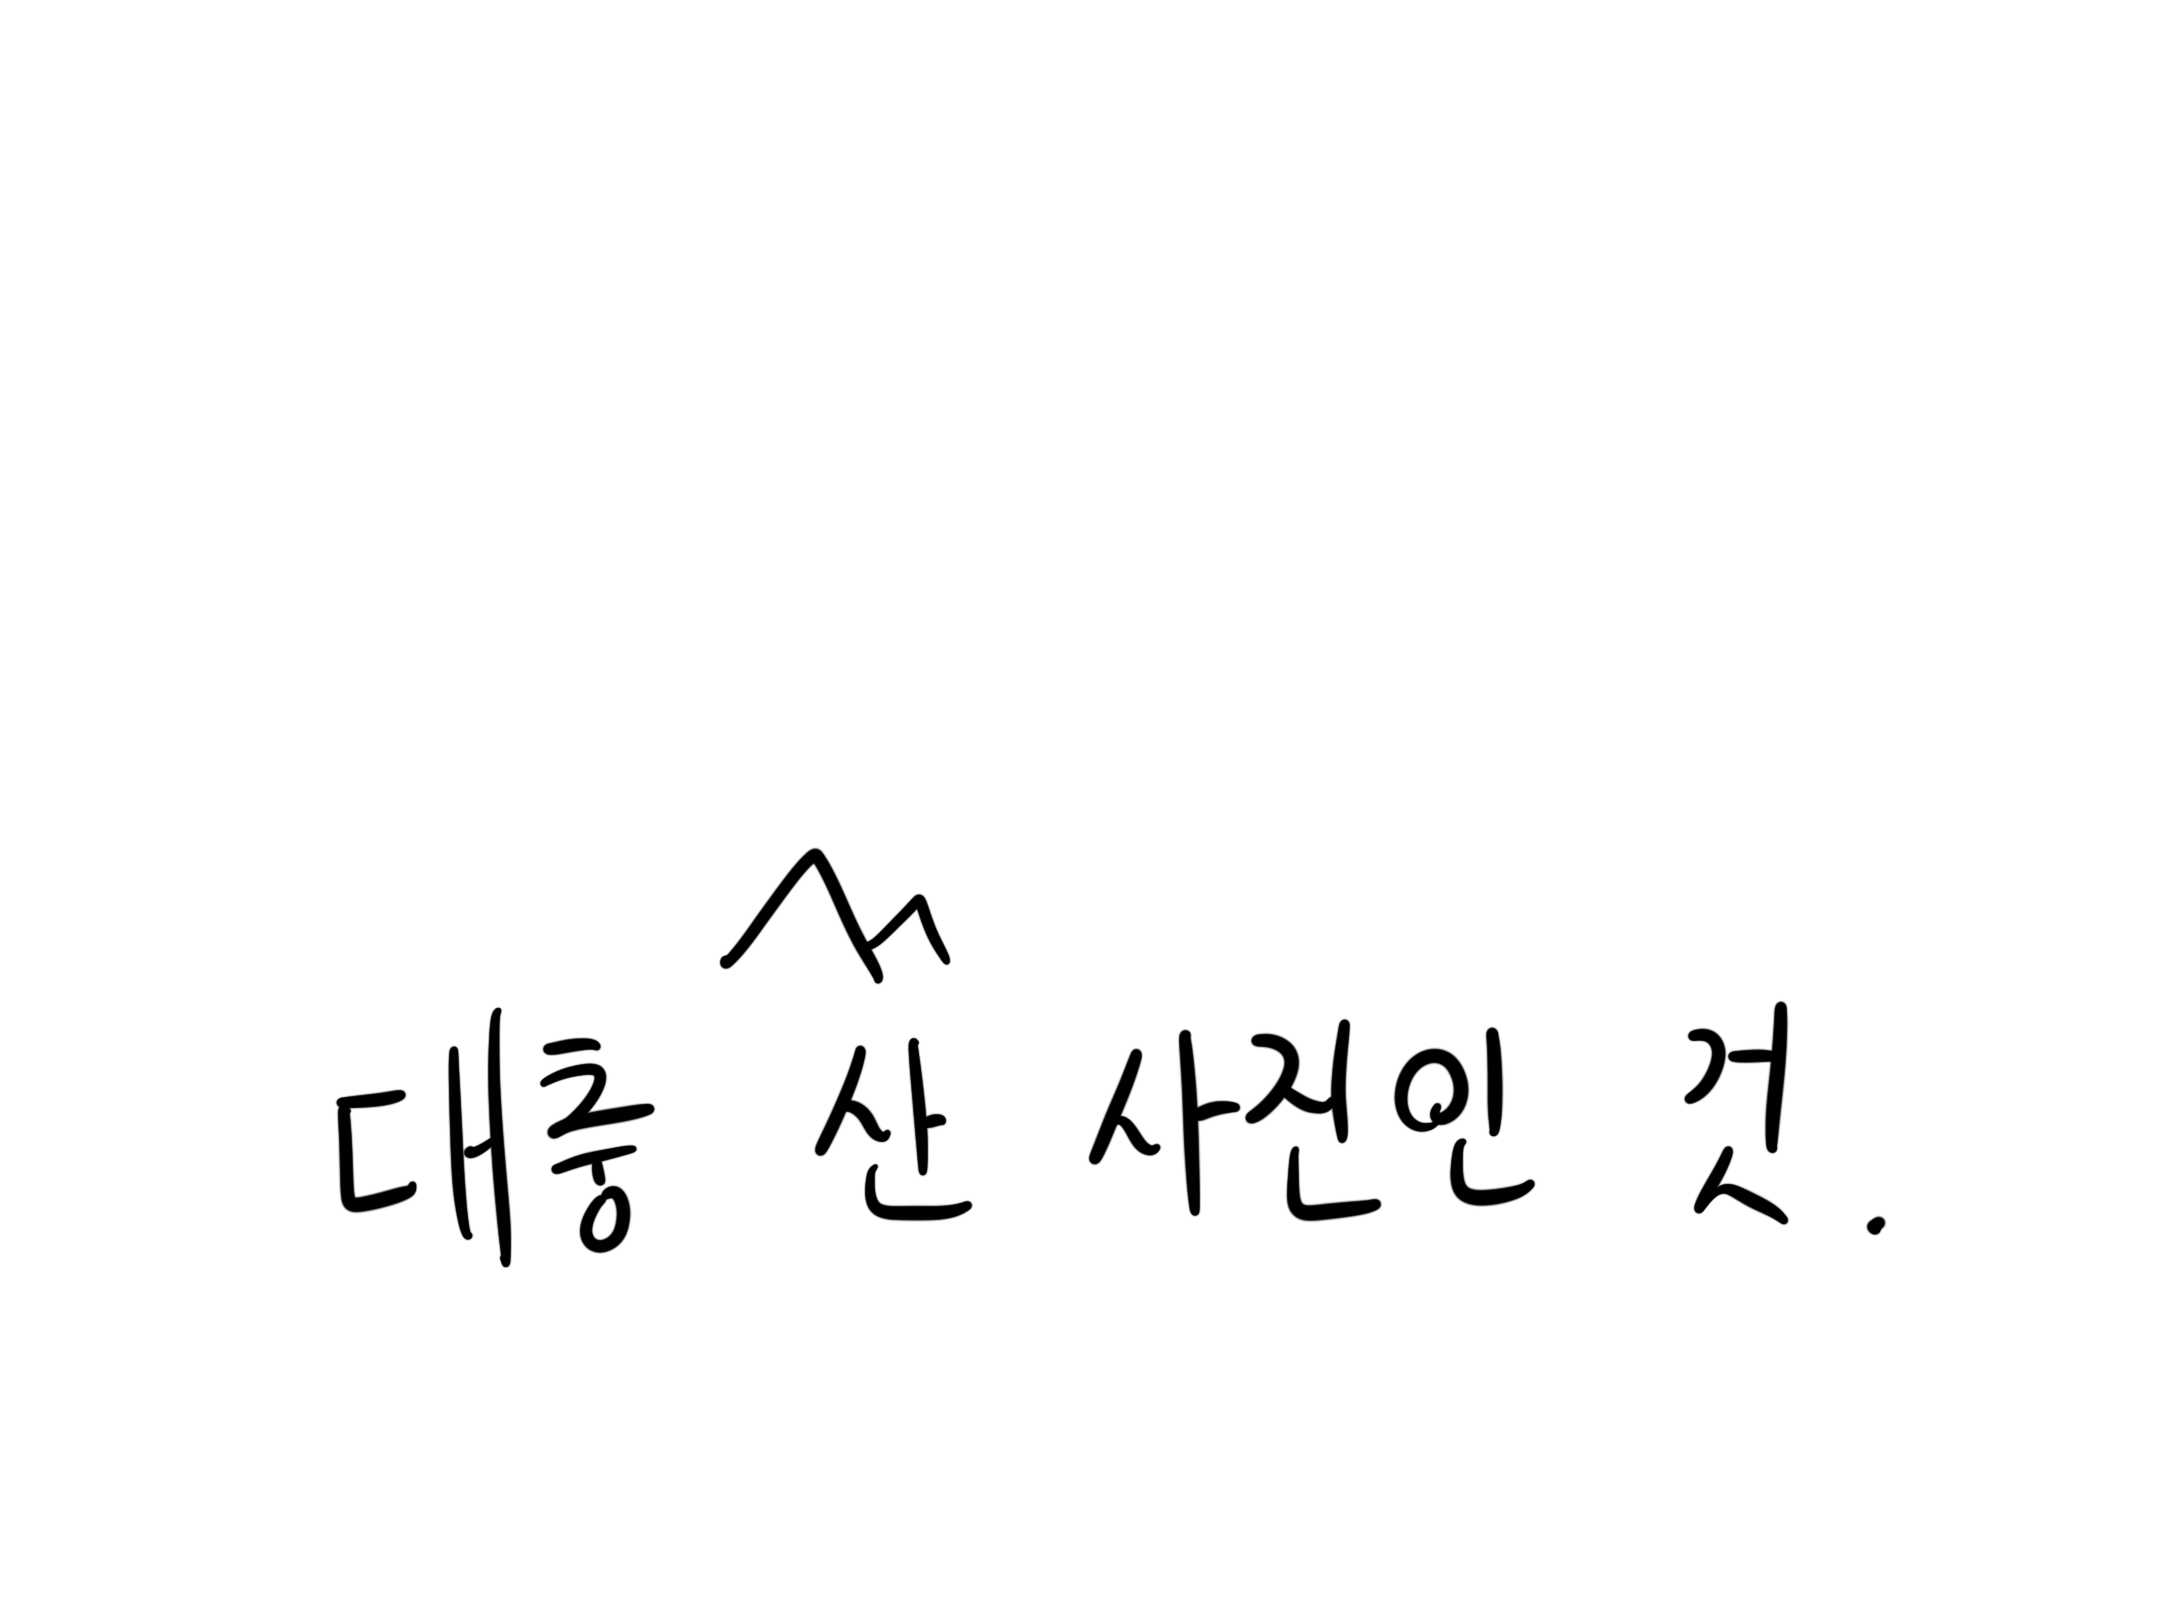 대충 산 사진인 것.